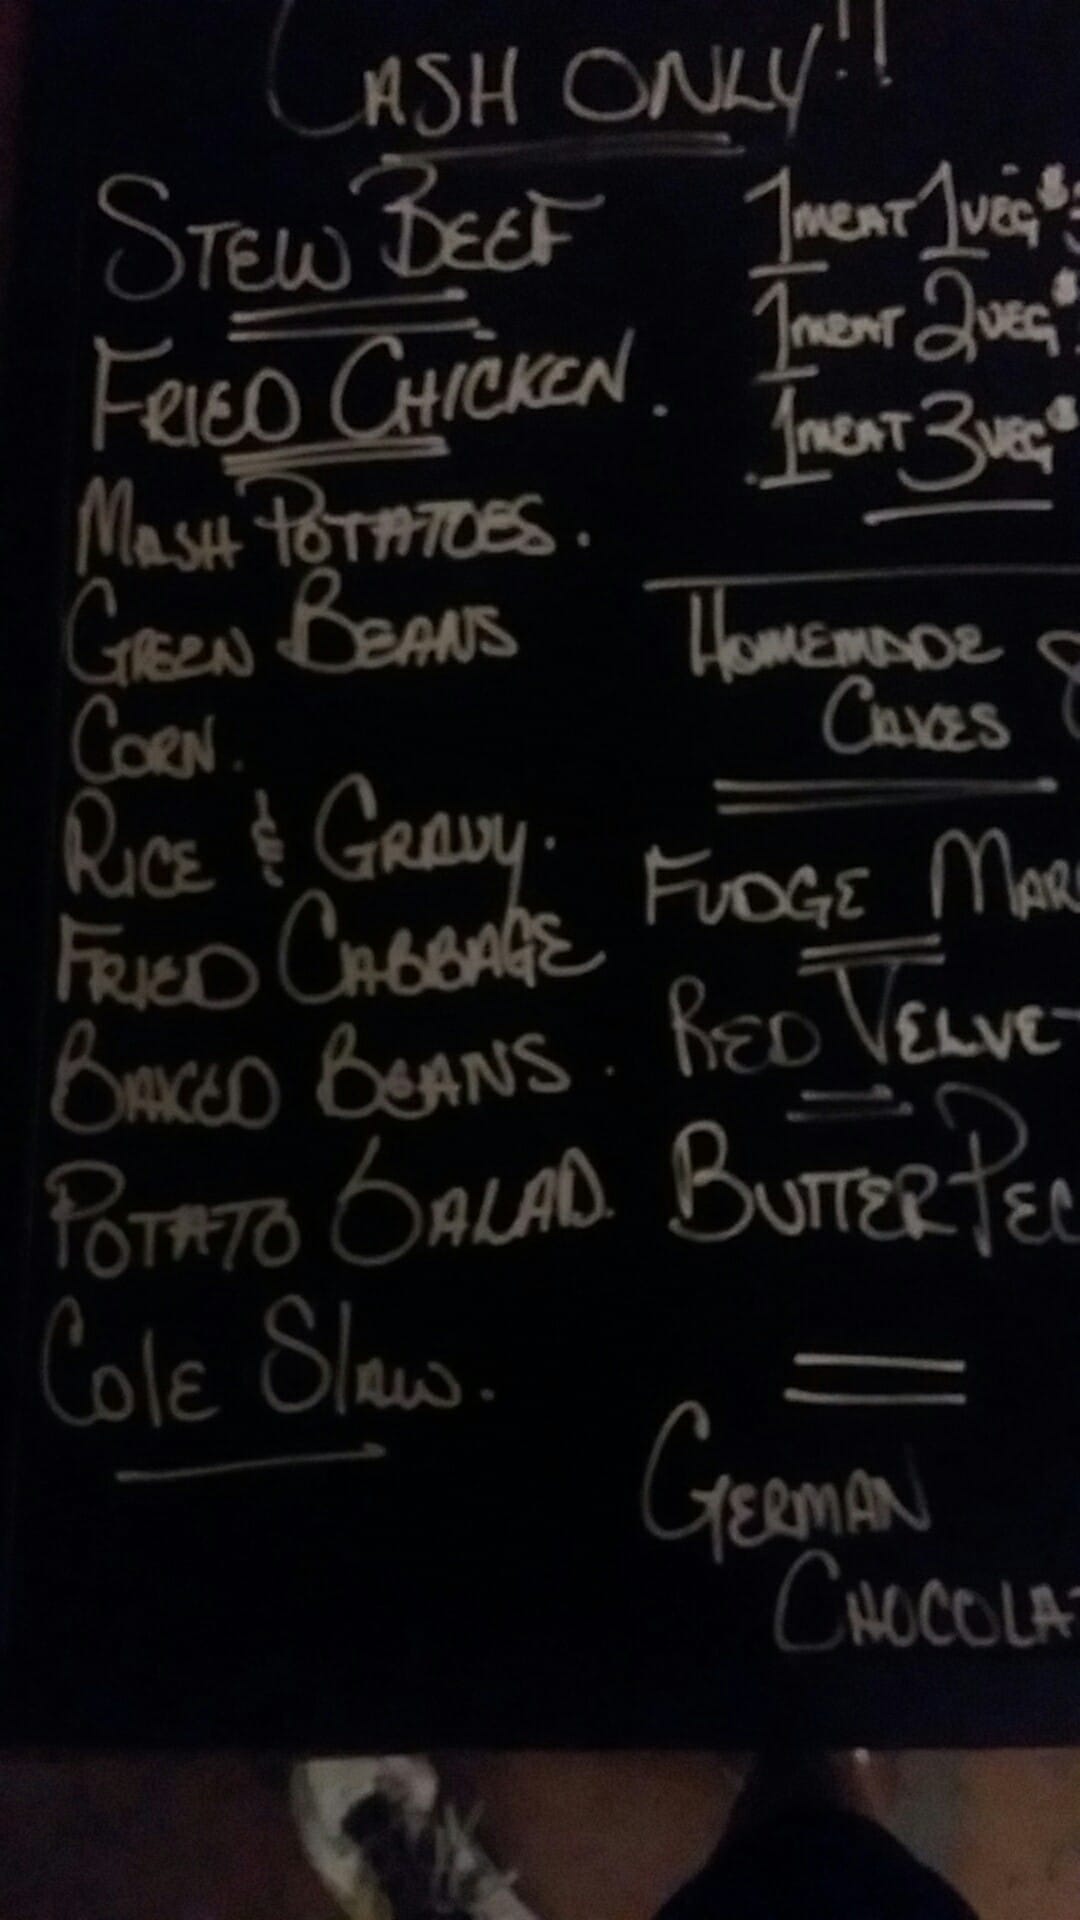 CASH ONLY!!
STEW BEEF
FRIED CHICKEN.
MASH POTATOES.
GREEN BEANS
CORN.
RICE & GRAVY.
FRIED CABBAGE
BAKED BEANS.
POTATO SALAD.
Cole Slaw.
1 MEAT 1 VEG $
1 MEAT 2 VEG $
1 MEAT 3 VEG $
HOMEMADE
CAKES
FUDGE MAR
RED VELVET
BUTTER PEC
GERMAN
CHOCOLAT